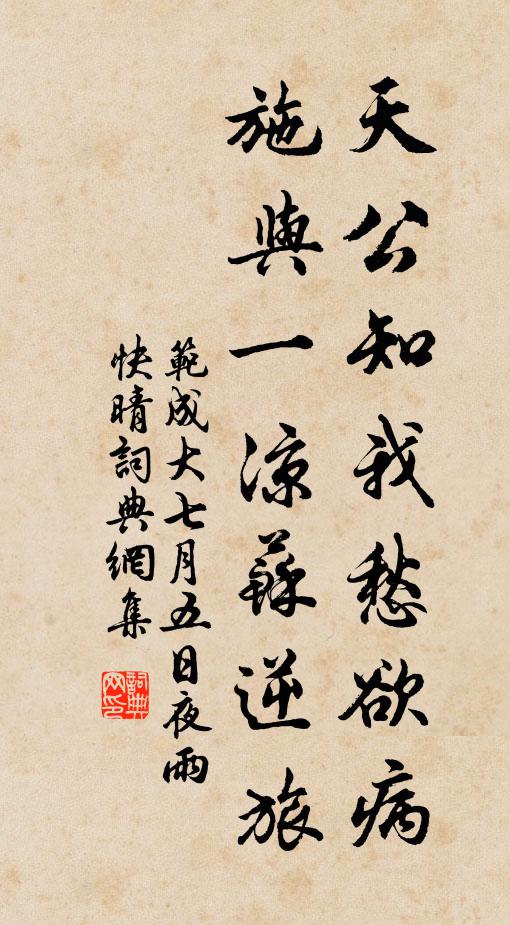 天公知我愁欲病
施與一涼蘇逆旅
範成大七月五日夜雨
快晴詞典網集
詞典
网印